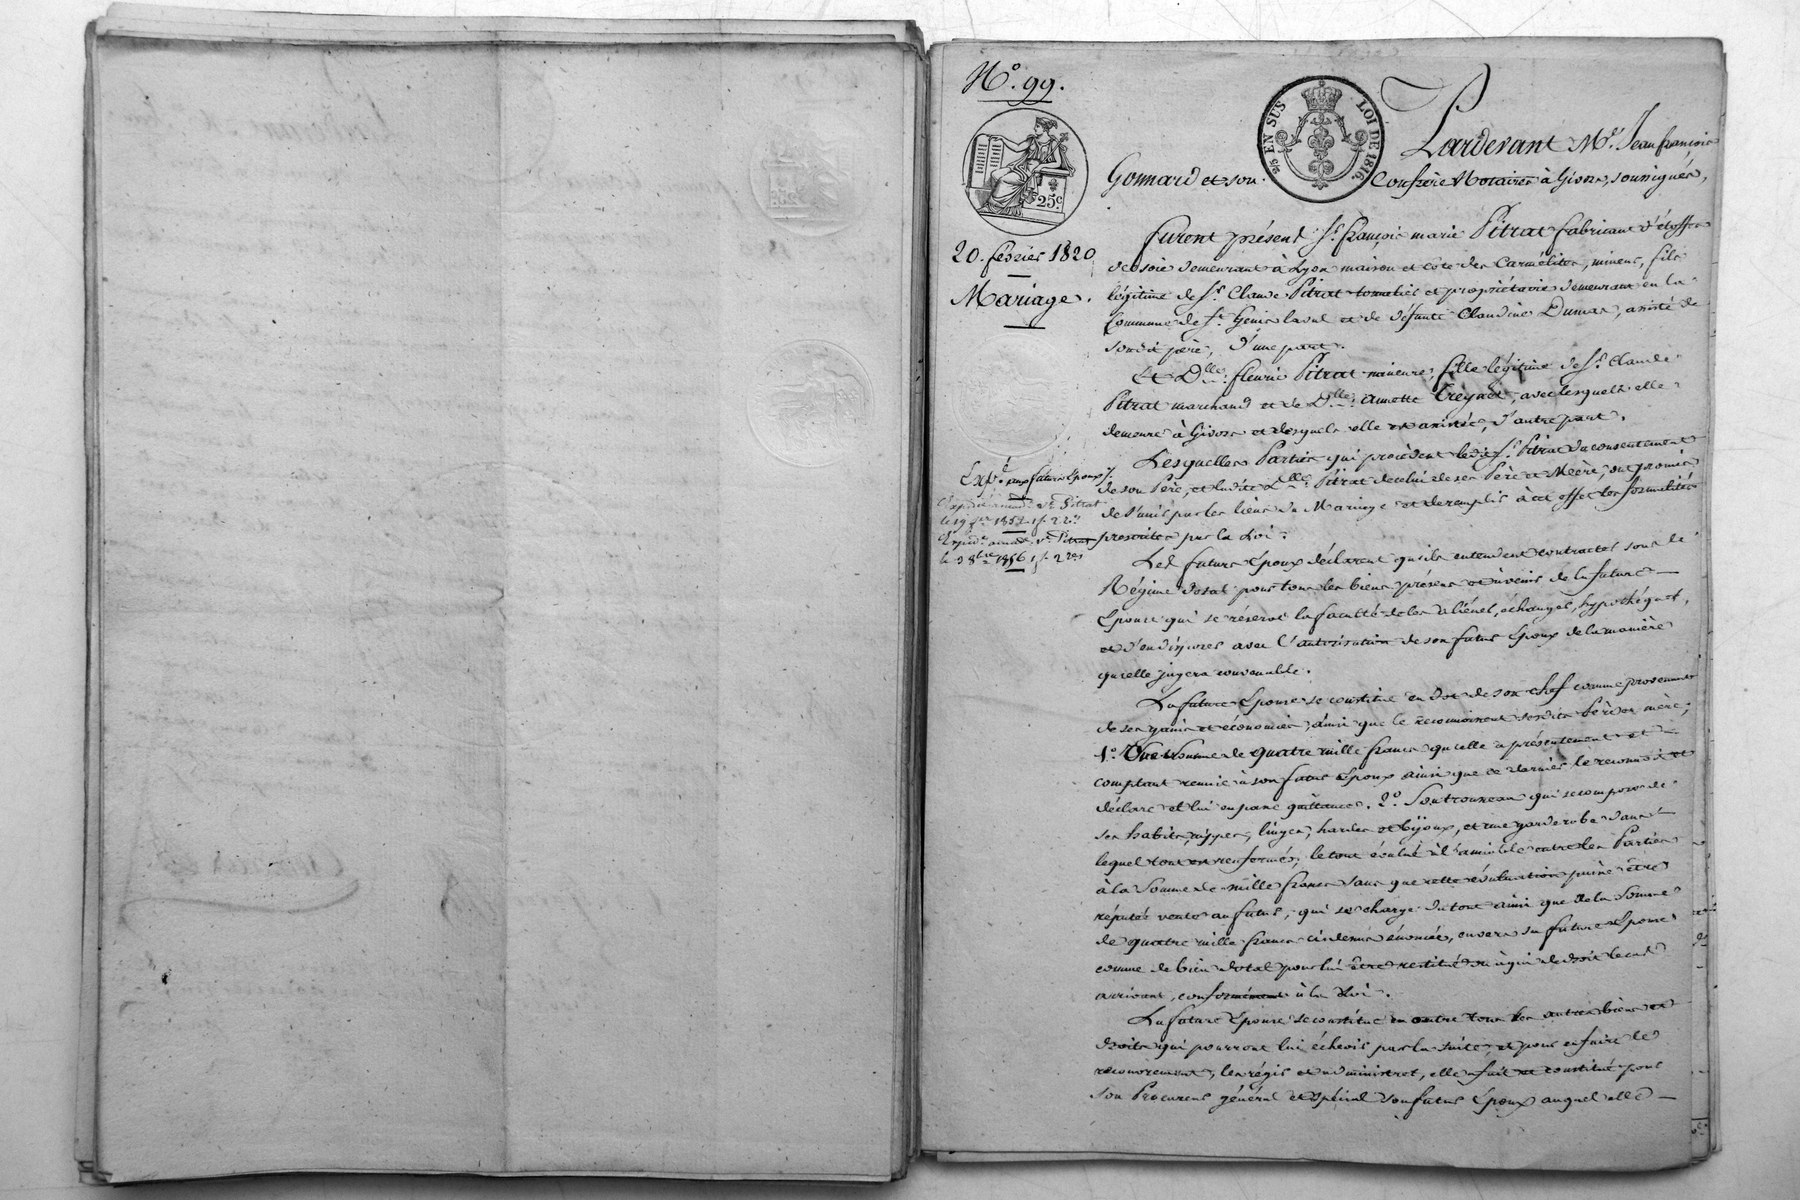 N.° 99.
EN SUS
LOI DE 1816.
25 c.
20. février 1820
Mariage.
Exp.é aux futurs Epoux /.
Pardevant M.e Jean françois
Gonnard et son Confrère Notaires à Givors, soussignés,
furent présent S.r françois marie Pitrat fabricant d'étoffes
de soie demeurant à Lyon maison et côte des Carmélites, mineur, fils
légitime de S.r Claude Pitrat tonnelier et propriétaire demeurant en la
Commune de S.t Genis laval et de défunte Claudine Dumas, assisté de
sondit père, d'une part.
Et D.lle fleurie Pitrat mineure, fille légitime de S.r Claude
Pitrat marchand et de D.lle annette Treynet, avec lesquels elle
demeure à Givors et desquels elle est assistée, d'autre part.
Lesquelles Parties qui procèdent ledit S.r Pitrat du consentement
de son Père, et ladite D.lle Pitrat de celui de ses Père et Mère, ont promis
de s'unir par les liens du Mariage et de remplir à cet effet les formalités
prescrites par la Loi.
Les futurs Epoux déclarent qu'ils entendent contracter sous le
Régime dotal pour tous les biens présens et à venir de la future
Epouse qui se réserve la faculté de les aliéner, échanger, hypothéquer,
et d'en disposer avec l'autorisation de son futur Epoux de la manière
qu'elle jugera convenable.
La future Epouse se constitue en dot de son chef comme provenant
de ses gains et économies, ainsi que le reconnoissent sesdits Père et mère;
1.° Une Somme de quatre mille francs qu'elle a présentement et
comptant remise à son futur Epoux ainsi que ce dernier le reconnoit et
déclare et lui en passe quittance. 2.° Son trousseau qui se compose de
ses habits, nippes, linges, hardes et bijoux, et une garderobe dans
lequel tout est renfermés; le tout évalué à l'amiable entre les Parties
à la Somme de mille francs sans que cette évaluation puisse être
réputée vente au futur, qui se charge du tout ainsi que de la Somme
de quatre mille francs cidessus énoncée, envers sa future Epouse
comme de bien dotal pour lui être restitué ou à qui de droit le cas
arrivant, conformément à la Loi.
La future Epouse se constitue en outre tous les autres biens et
droits qui pourront lui échoir par la suite, et pour en faire le
recouvrement, les régir et administrer, elle fait et constitue pour
son Procureur général et spécial son futur Epoux auquel elle